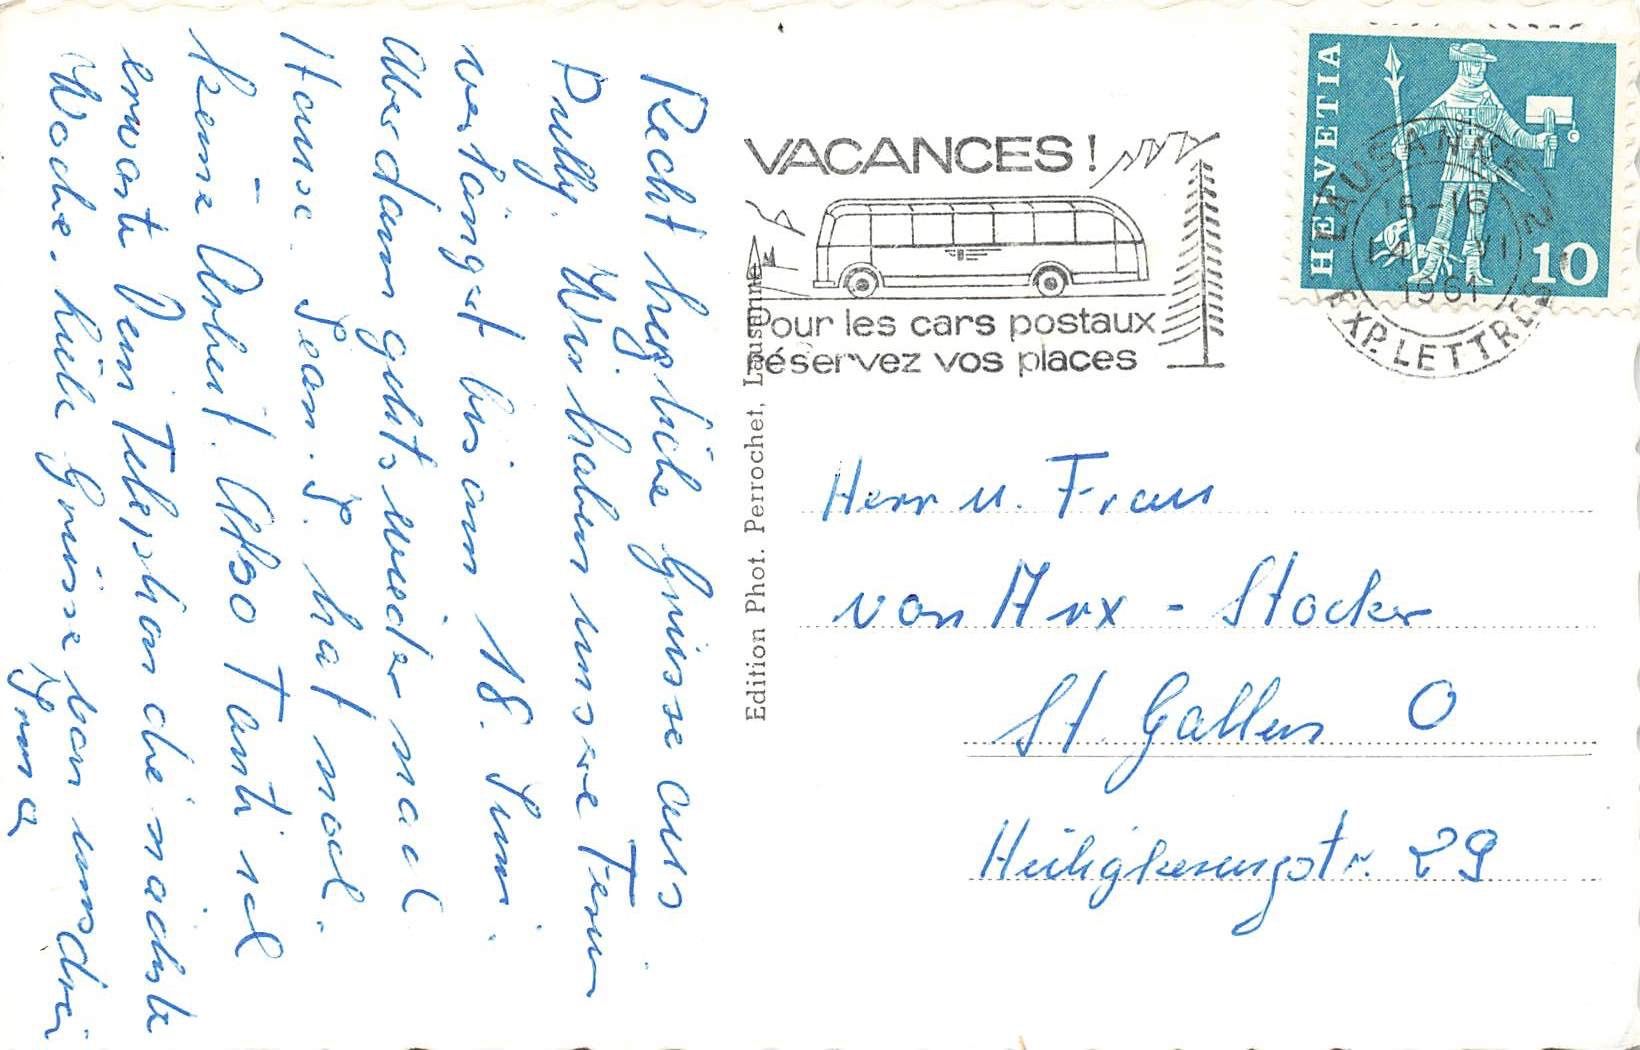 Recht herzliche Grüsse aus
Pully. Wir haben unsere Ferien
verlängert bis am 18. Juni.
Aber dann gehts wieder nach
Hause. Jean. J. hat noch
keine Arbeit. Also Tanti ich
erwarte Dein Telephon die nächste
Woche. Liebe Grüsse von uns drei
Irma
VACANCES!
Pour les cars postaux
réservez vos places
HELVETIA
10
LAUSANNE 2
15-16
VI
1961
EXP. LETTRES
Edition Phot. Perrochet, Lausanne
Herr u. Frau
von Arx - Stocker
St. Gallen O
Heiligkreuzstr. 29